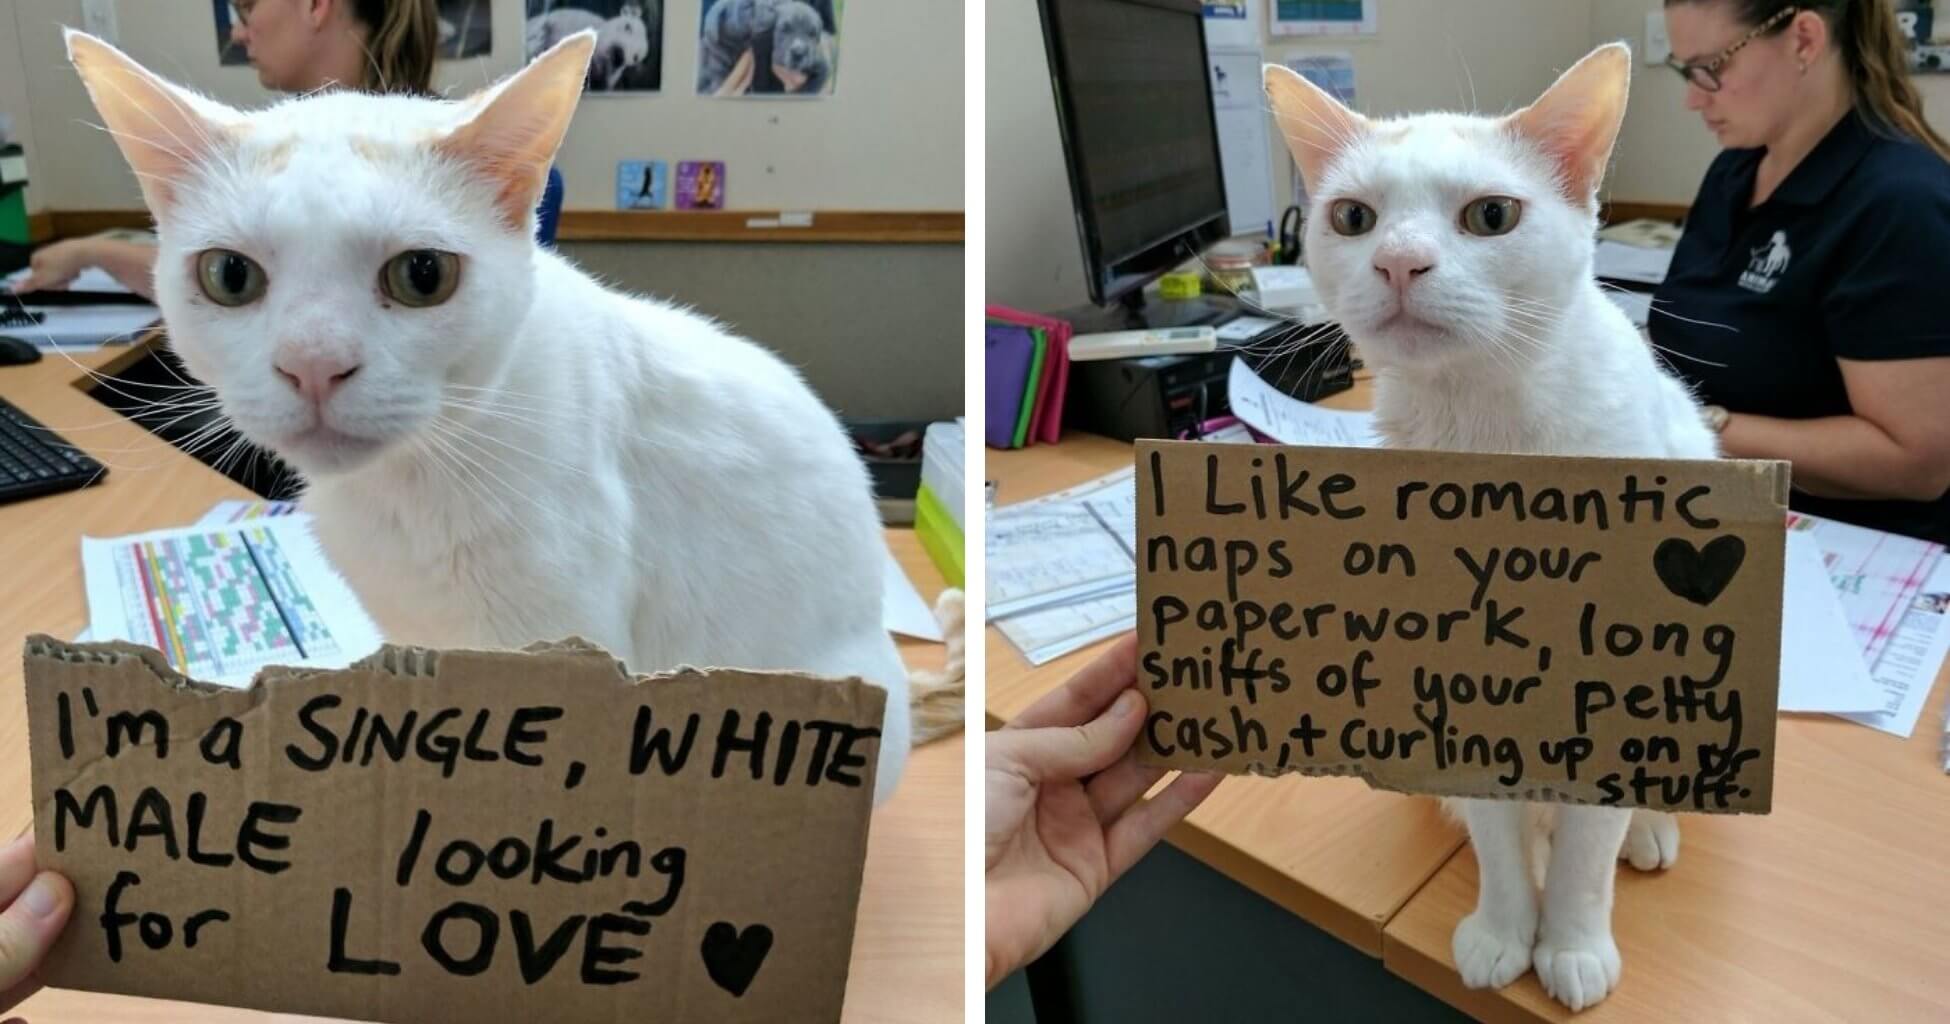 I'm a SINGLE, WHITE
MALE looking
for LOVE ♥
I Like romantic
naps on your ♥
paperwork, long
sniffs of your petty
cash, + curling up on ur
stuff.